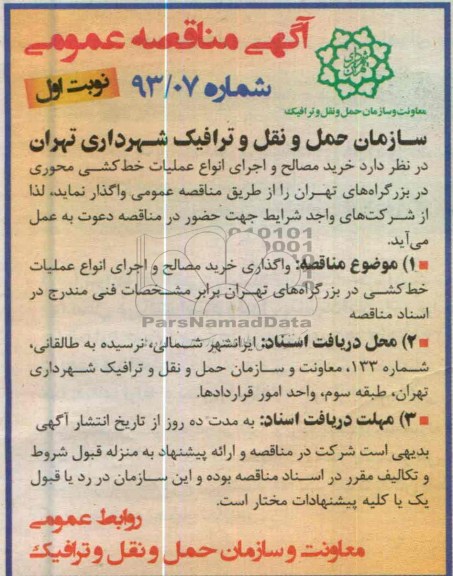 آگهی مناقصه عمومی
شماره ۹۳/۰۷
نوبت اول
معاونت و سازمان حمل و نقل و ترافیک
سازمان حمل و نقل و ترافیک شهرداری تهران
در نظر دارد خرید مصالح و اجرای انواع عملیات خط‌کشی محوری
در بزرگراه‌های تهران را از طریق مناقصه عمومی واگذار نماید، لذا
از شرکت‌های واجد شرایط جهت حضور در مناقصه دعوت به عمل
می‌آید.
۱) موضوع مناقصه: واگذاری خرید مصالح و اجرای انواع عملیات
خط‌کشی در بزرگراه‌های تهران برابر مشخصات فنی مندرج در
اسناد مناقصه
ParsNamadData
۲) محل دریافت اسناد: ایرانشهر شمالی، نرسیده به طالقانی،
شماره ۱۳۳، معاونت و سازمان حمل و نقل و ترافیک شهرداری
تهران، طبقه سوم، واحد امور قراردادها.
۳) مهلت دریافت اسناد: به مدت ده روز از تاریخ انتشار آگهی
بدیهی است شرکت در مناقصه و ارائه پیشنهاد به منزله قبول شروط
و تکالیف مقرر در اسناد مناقصه بوده و این سازمان در رد یا قبول
یک یا کلیه پیشنهادات مختار است.
روابط عمومی
معاونت و سازمان حمل و نقل و ترافیک